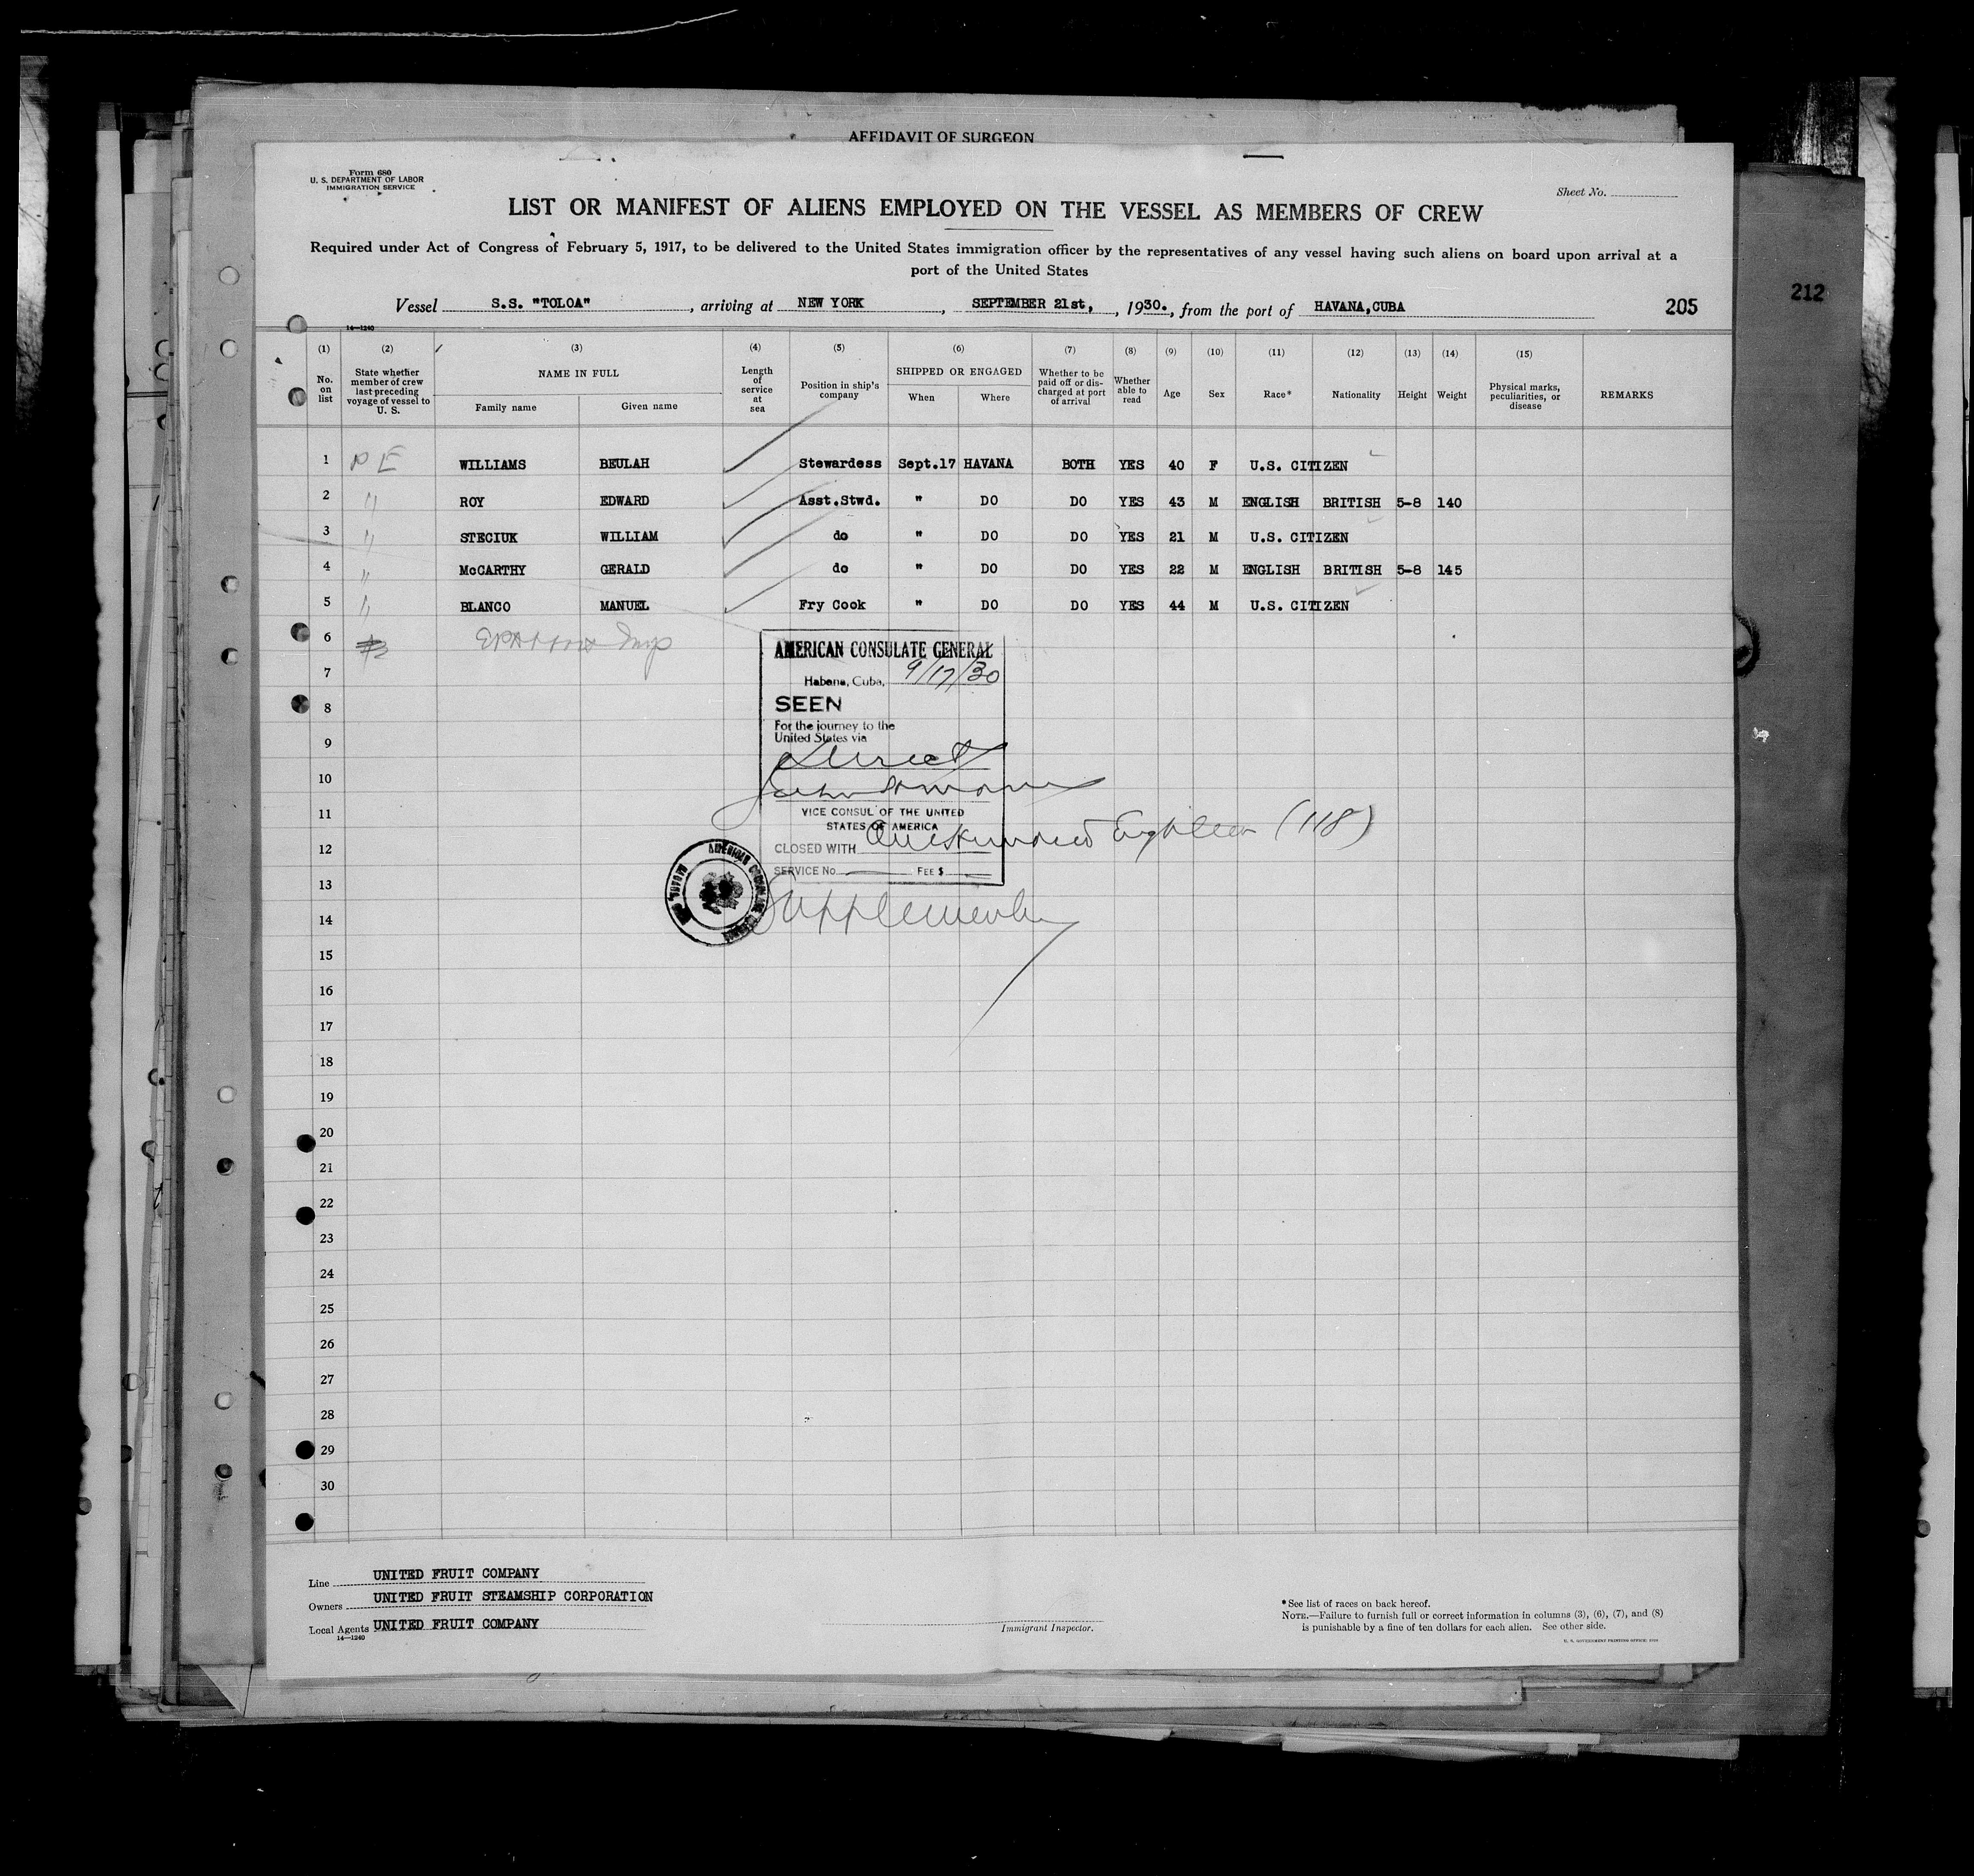 AFFIDAVIT OF SURGEON
Form 680
U. S. DEPARTMENT OF LABOR
IMMIGRATION SERVICE
Sheet No.
LIST OR MANIFEST OF ALIENS EMPLOYED ON THE VESSEL AS MEMBERS OF CREW
Required under Act of Congress of February 5, 1917, to be delivered to the United States immigration officer by the representatives of any vessel having such aliens on board upon arrival at a
port of the United States
Vessel S.S. "TOLOA", arriving at NEW YORK, SEPTEMBER 21st, , 1930., from the port of HAVANA,CUBA
205
212
14—1240
(1) (2) (3) (4) (5) (6) (7) (8) (9) (10) (11) (12) (13) (14) (15)
No. on list
State whether member of crew last preceding voyage of vessel to U. S.
NAME IN FULL
Family name Given name
Length of service at sea
Position in ship's company
SHIPPED OR ENGAGED
When Where
Whether to be paid off or discharged at port of arrival
Whether able to read
Age
Sex
Race*
Nationality
Height
Weight
Physical marks, peculiarities, or disease
REMARKS
1 P E WILLIAMS BEULAH Stewardess Sept.17 HAVANA BOTH YES 40 F U.S. CITIZEN
2 " ROY EDWARD Asst.Stwd. " DO DO YES 43 M ENGLISH BRITISH 5-8 140
3 " STECIUK WILLIAM do " DO DO YES 21 M U.S. CITIZEN
4 " McCARTHY GERALD do " DO DO YES 22 M ENGLISH BRITISH 5-8 145
5 " BLANCO MANUEL Fry Cook " DO DO YES 44 M U.S. CITIZEN
6
7
8
9
10
11
12
13
14
15
16
17
18
19
20
21
22
23
24
25
26
27
28
29
30
AMERICAN CONSULATE GENERAL
Habana, Cuba, 9/17/30
SEEN
For the journey to the
United States via
Direct
VICE CONSUL OF THE UNITED
STATES OF AMERICA
CLOSED WITH One Hundred Eighteen (118)
SERVICE No. FEE $
Supplementary
Line UNITED FRUIT COMPANY
Owners UNITED FRUIT STEAMSHIP CORPORATION
Local Agents UNITED FRUIT COMPANY
14—1240
Immigrant Inspector.
*See list of races on back hereof.
NOTE.—Failure to furnish full or correct information in columns (3), (6), (7), and (8)
is punishable by a fine of ten dollars for each alien. See other side.